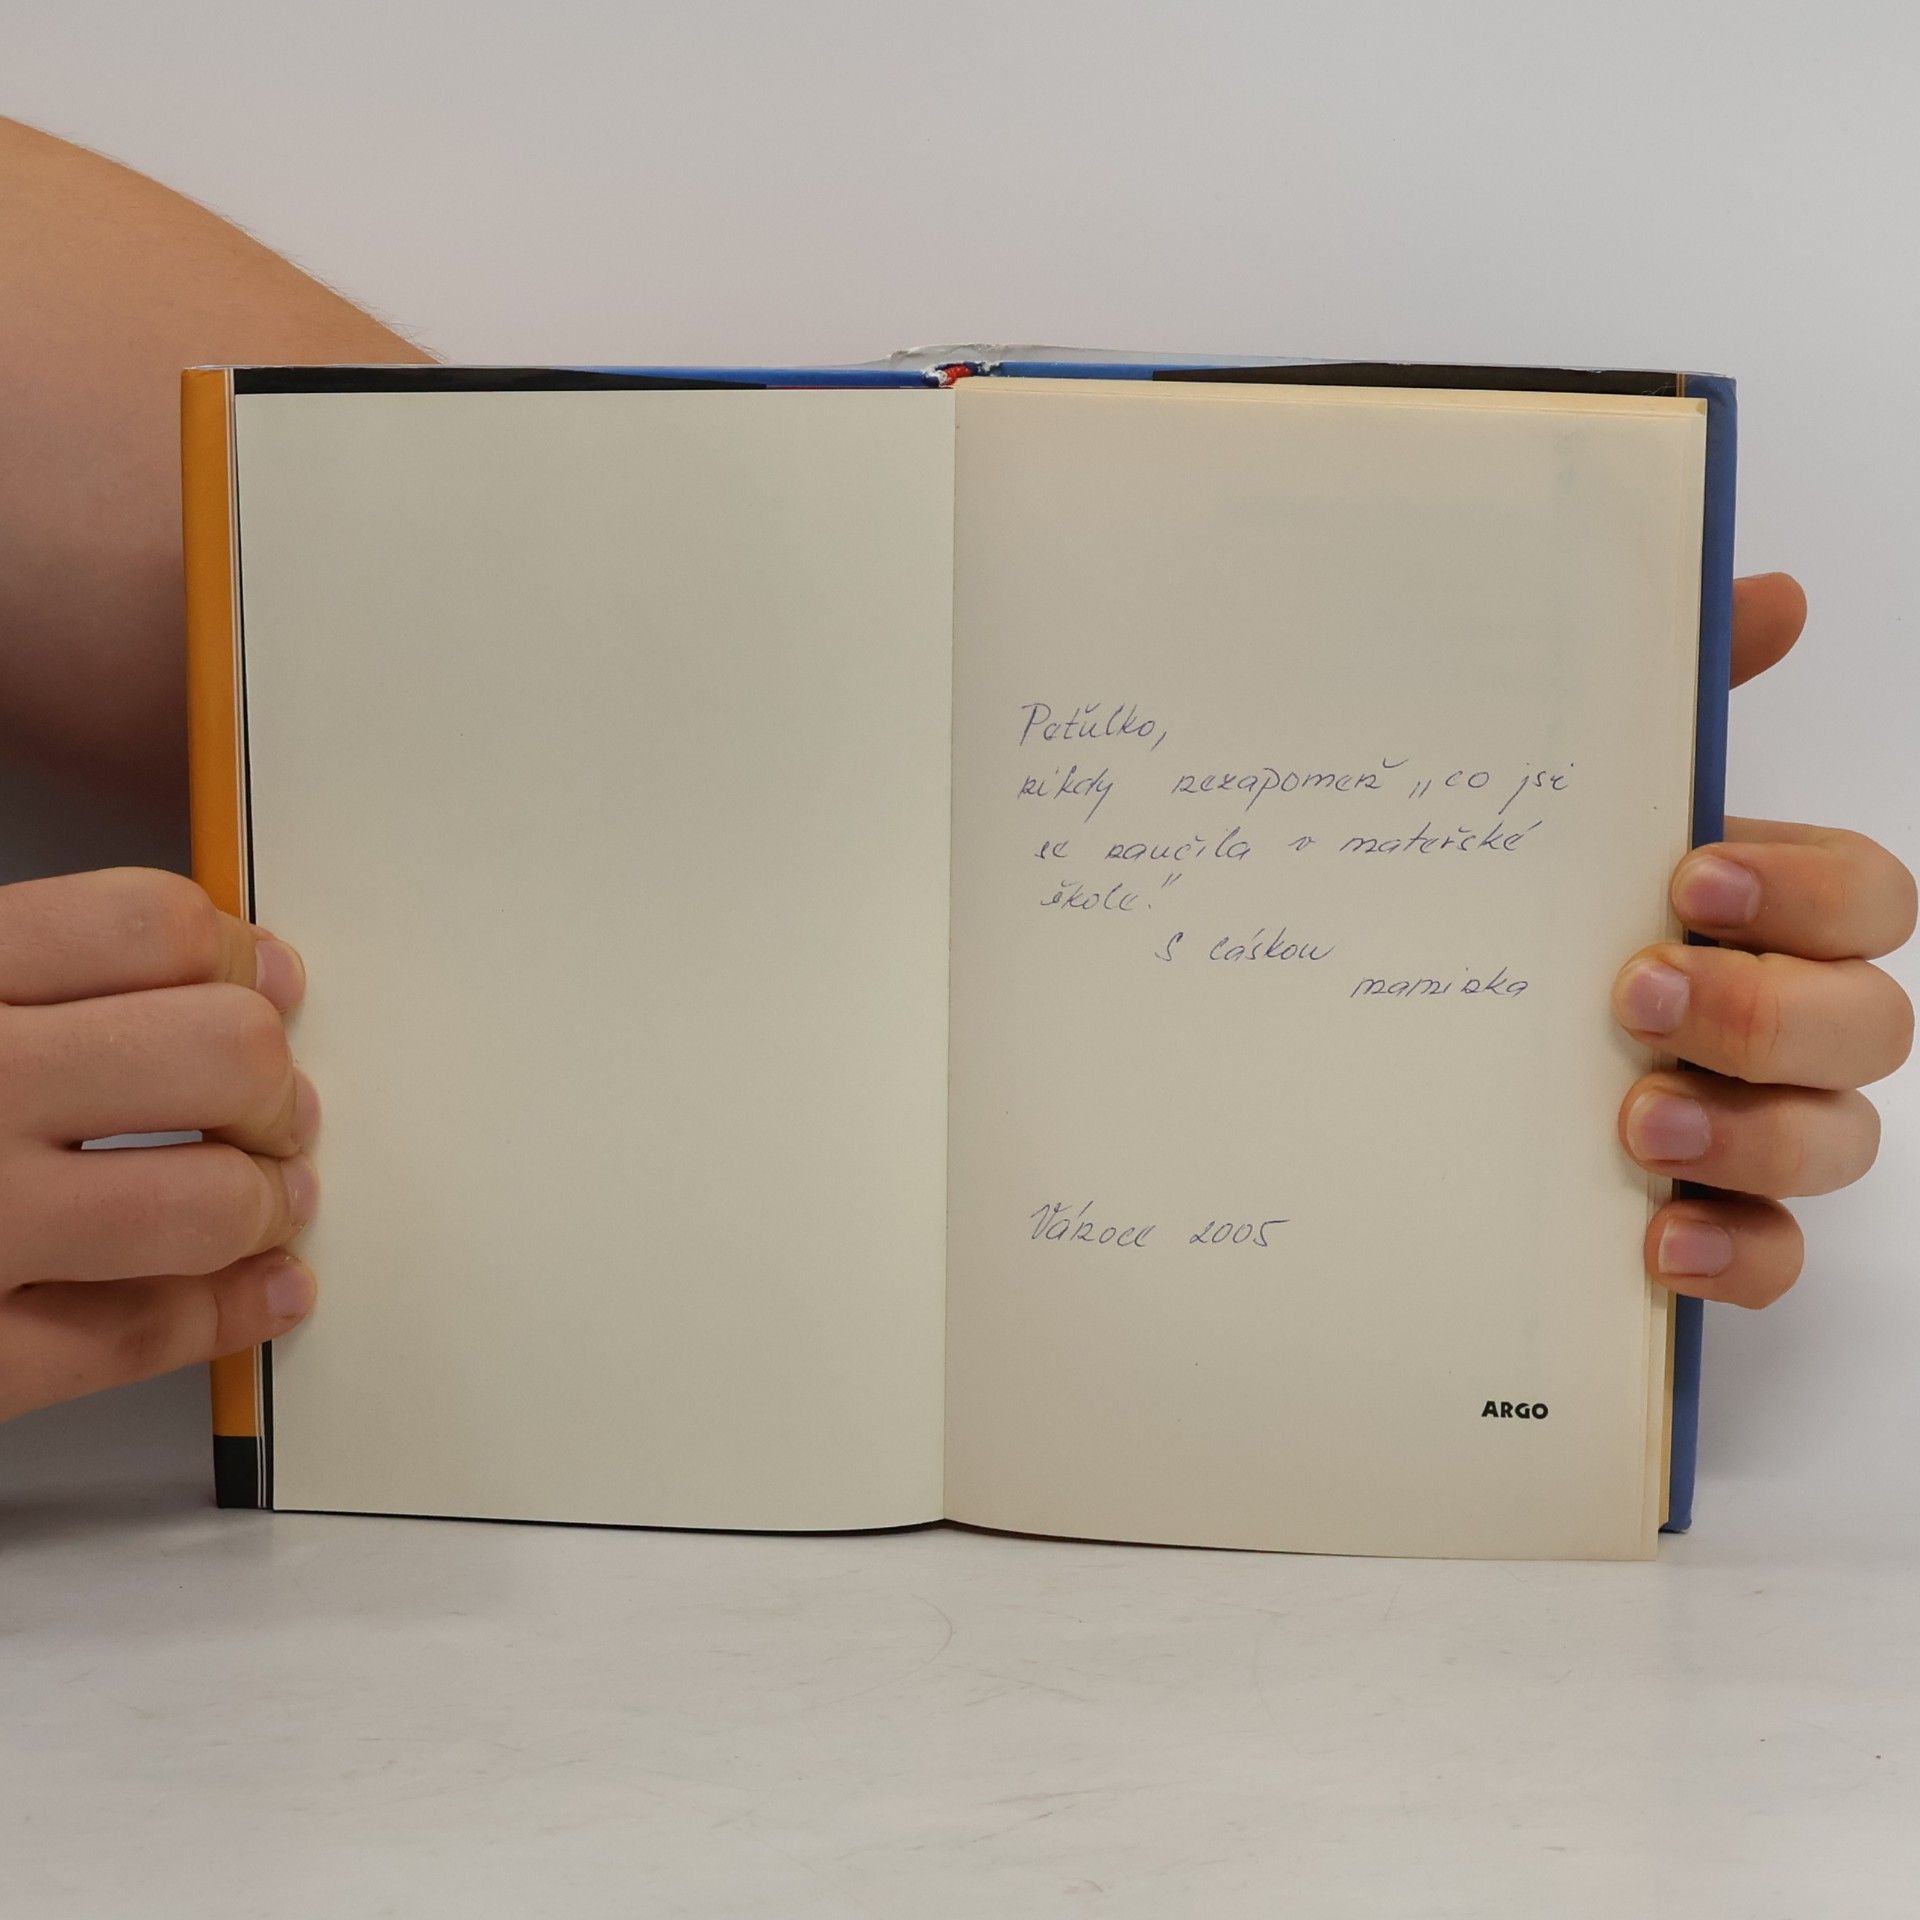 Peťulko,
nikdy nezapomeň „co jsi
se naučila v mateřské
škole."
S láskou
maminka
Vánoce 2005
ARGO